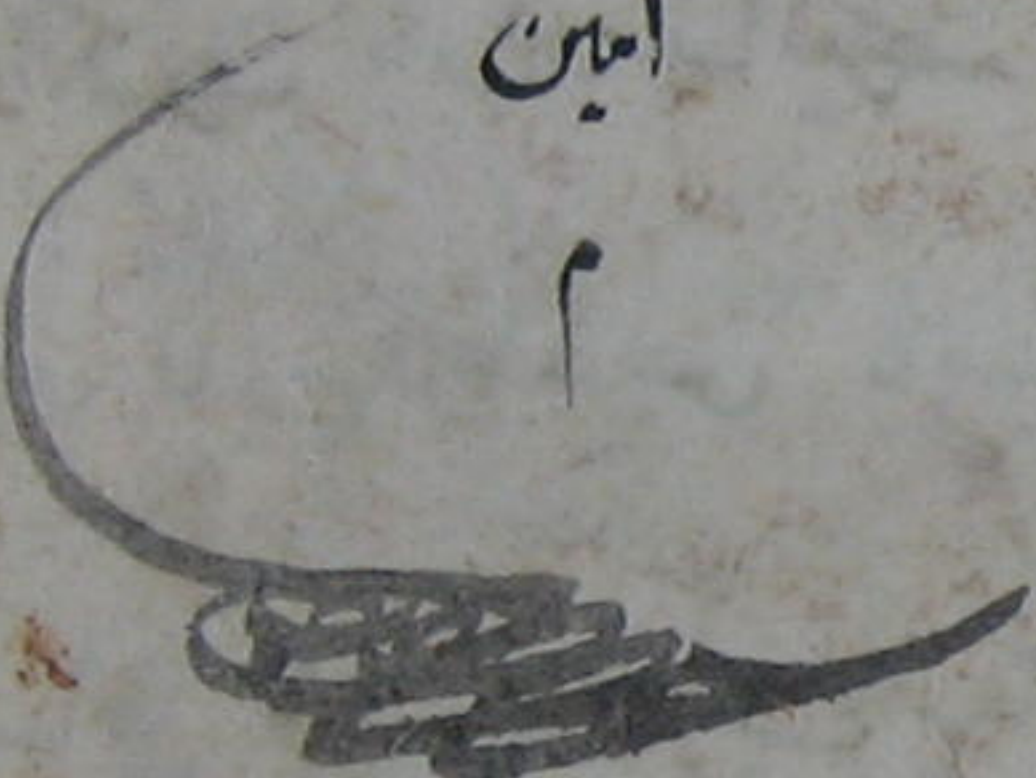 امين
م